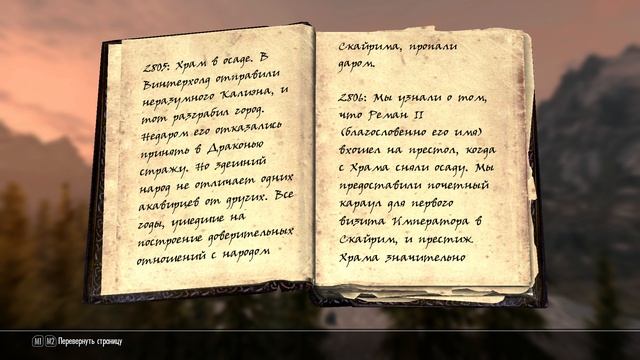 2805: Храм в осаде. В
Винтерхолд отправили
неразумного Калиэна, и
тот разграбил город.
Недаром его отказались
принять в Драконью
стражу. Но здешний
народ не отличает одних
акавирцев от других. Все
годы, ушедшие на
построение доверительных
отношений с народом
Скайрима, пропали
даром.
2806: Мы узнали о том,
что Реман II
(благословенно его имя)
взошел на престол, когда
с Храма сняли осаду. Мы
предоставили почетный
караул для первого
визита Императора в
Скайрим, и престиж
Храма значительно
M1 M2 Перевернуть страницу